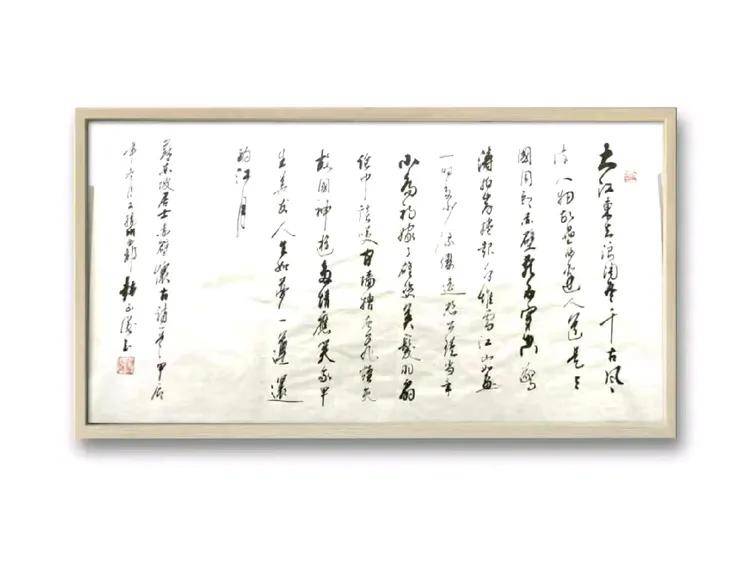 大江東去浪淘盡千古風
流人物故壘西邊人道是三
國周郎赤壁亂石穿空驚
濤拍岸捲起千堆雪江山如畫
一時多少豪傑遙想公瑾當年
小喬初嫁了雄姿英發羽扇
綸巾談笑間檣櫓灰飛煙滅
故國神遊多情應笑我早
生華髮人生如夢一尊還
酹江月
蘇東坡居士赤壁懷古調 甲辰